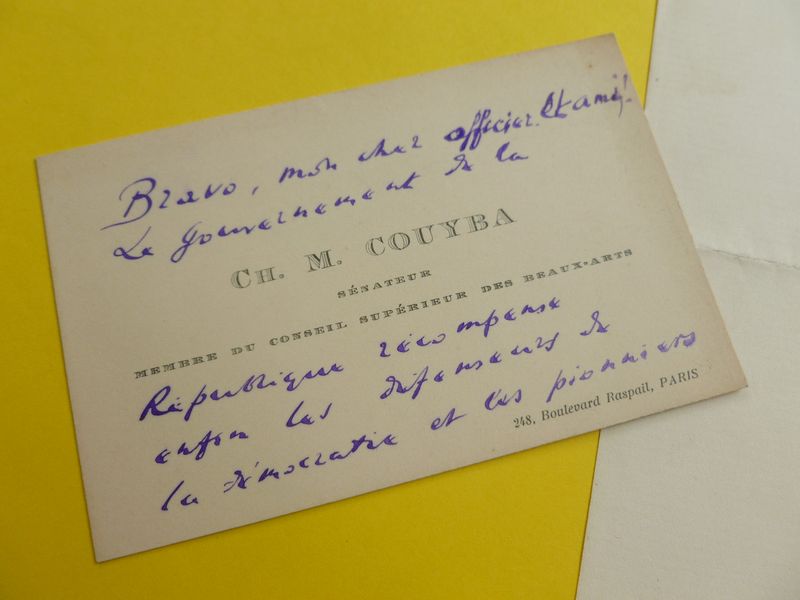 Bravo, mon cher officier. Et ami!
Le Gouvernement de la
CH. M. COUYBA
SÉNATEUR
MEMBRE DU CONSEIL SUPÉRIEUR DES BEAUX-ARTS
République récompense
enfin les défenseurs de
la démocratie et les pionniers
248, Boulevard Raspail, PARIS